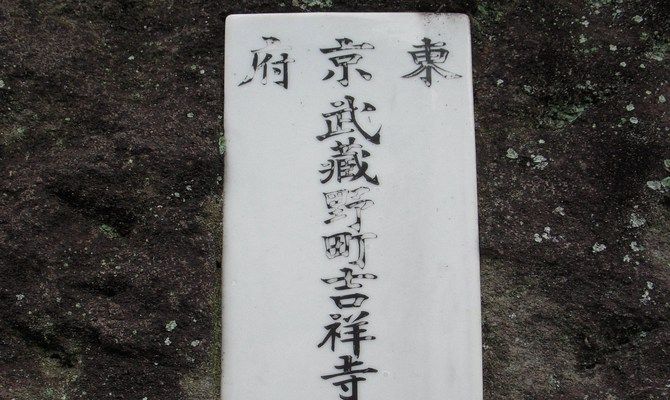 東京府
武藏野町吉祥寺